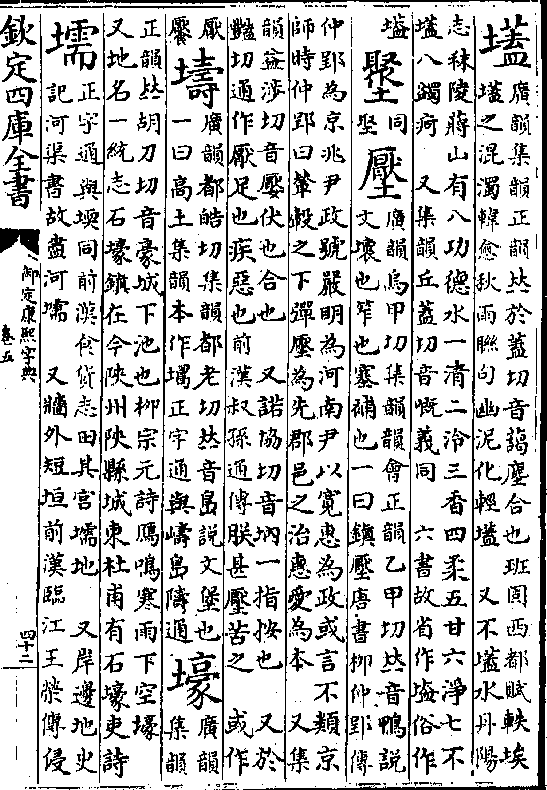 壒
廣韻集韻正韻𠀤於蓋切音藹塵合也班固西都賦軼埃
壒之混濁韓愈秋雨聯句幽泥化輕壒 又不壒水丹陽
志秣陵蔣山有八功德水一清二冷三香四柔五甘六淨七不
壒八蠲痾 又集韻丘蓋切音嘅義同 六書故省作塧俗作
同
壓
廣韻烏甲切集韻韻會正韻乙甲切𠀤音鴨說
文壞也笮也塞補也一曰鎮壓唐書柳仲郢傳
仲郢為京兆尹政號嚴明為河南尹以寬惠為政或言不類京
師時仲郢曰輦轂之下彈壓為先郡邑之治惠愛為本 又集
韻益涉切音魘伏也合也 又諾協切音㘝一指按也 又於
豔切通作厭足也疾惡也前漢叔孫通傳朕甚壓苦之 或作
厭
饜
壔
廣韻都皓切集韻都老切𠀤音島說文堡也
一曰高土集韻本作正字通與島隯通
壕
廣韻
集韻
正韻𠀤胡刀切音豪城下池也柳宗元詩鴈鳴寒雨下空壕
又地名一統志石壕鎮在今陝州陝縣城東杜甫有石壕吏詩
壖
正字通與堧同前漢食貨志田其宮壖地 又岸邊地史
記河渠書故盡河壖 又牆外短垣前漢臨江王榮傳侵
欽定四庫全書
御定康熙字典
卷五
四十二